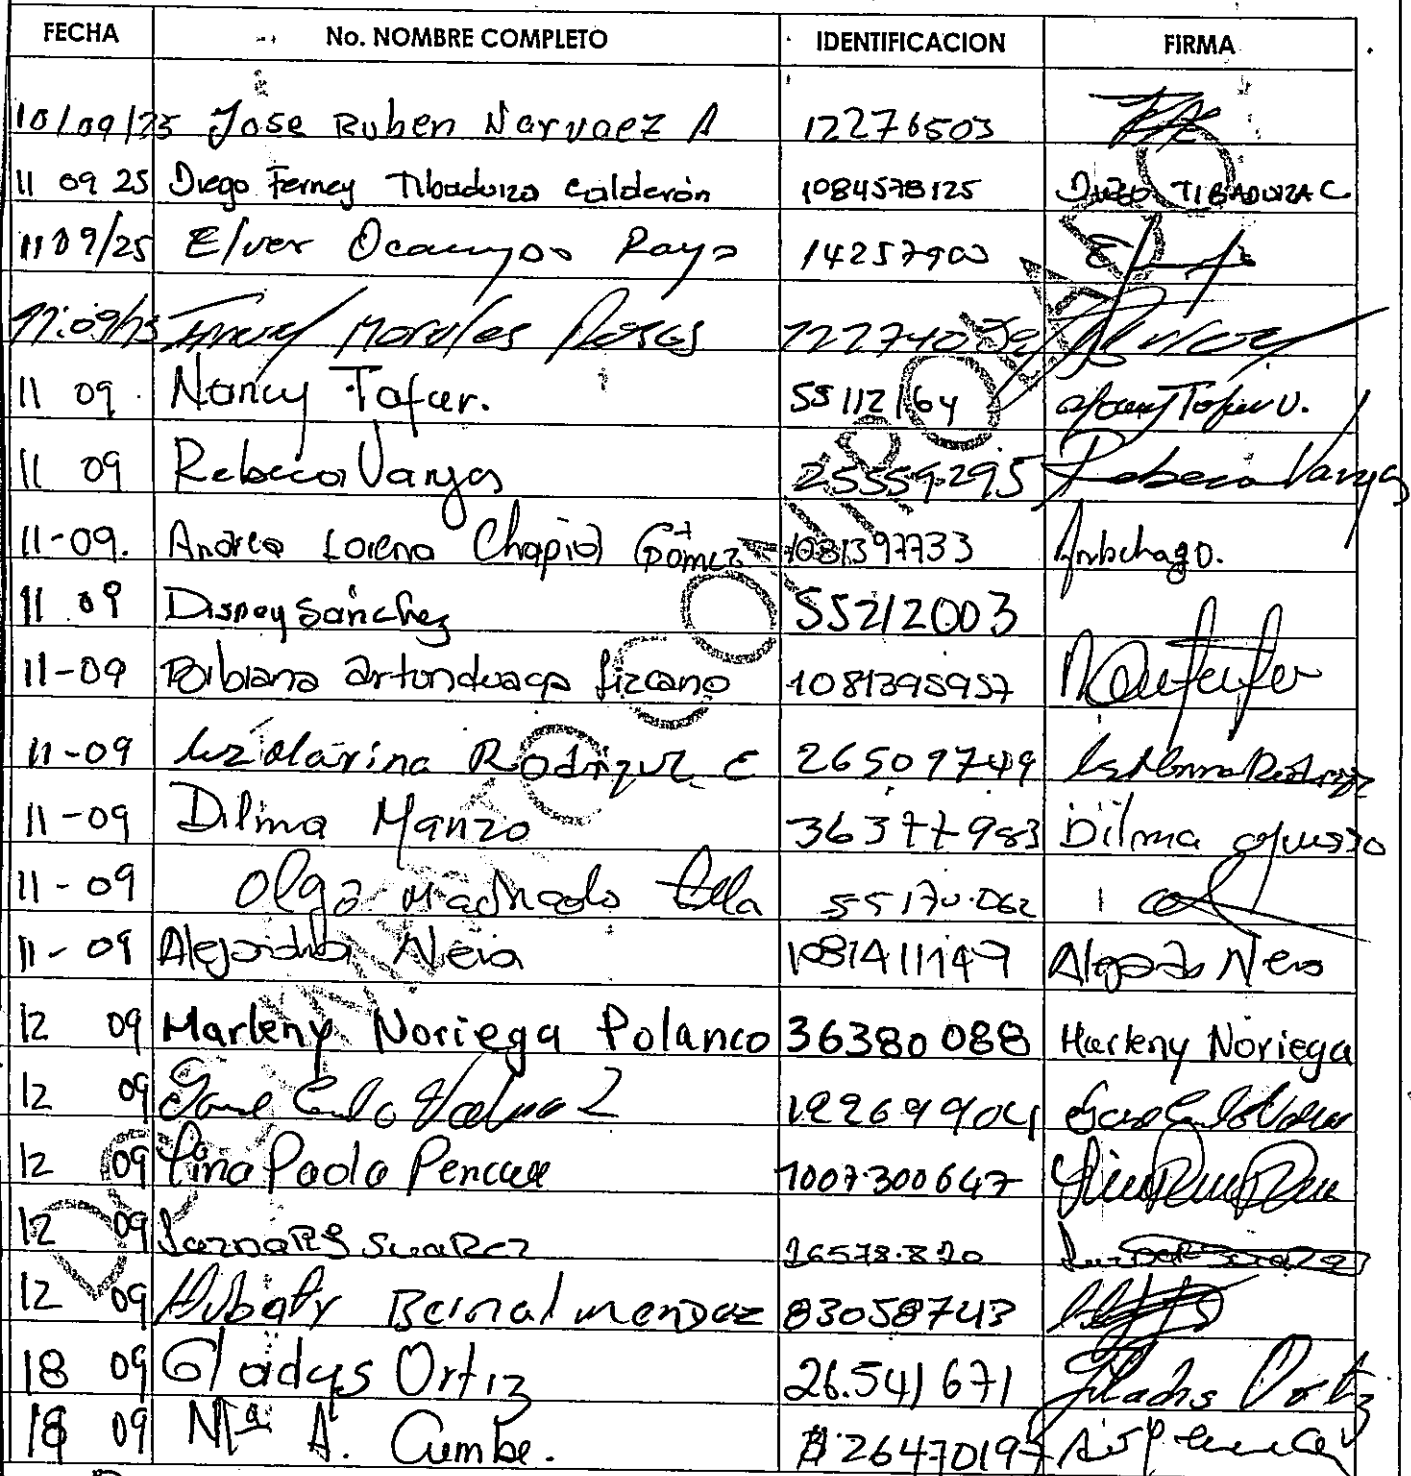 FECHA No. NOMBRE COMPLETO IDENTIFICACION FIRMA
10/09/25 Jose Ruben Narvaez A 12276503
11 09 25 Diego Ferney Tibaduiza Calderón 1084578125 Diego TIBADUIZA C
11 09/25 Elver Ocampo Rayo 14257903
11:09/25 Morales
11 09 Nancy Tafur. 55112164 Nancy Tafur V.
11 09 Rebeca Vargas 25559295 Rebeca Vargas
11-09. Andrea Lorena Chapid Gómez 1081397733
11 09 Disney Sánchez 55212003
11-09 Bibiana artunduaga lizcano 1081395957
11-09 luz Marina Rodriguez C 26509749
11-09 Dilma Manzo 36377983 Dilma Manzo
11-09 Olga Machado 55170.062
11-09 Alejandra Neia 1081411149
12 09 Marleny Noriega Polanco 36380088 Marleny Noriega
12 09 12269904
12 09 Lina Paola Pencue 1007300647
12 09 Luzdaris Suarez 26578.820
12 09 Bernal mendez 830587743
18 09 Gladys Ortiz 26.541671 Gladys Ortiz
18 09 Mª A. Cumbe. 26470197
DOCUMENTO CONTROLADO